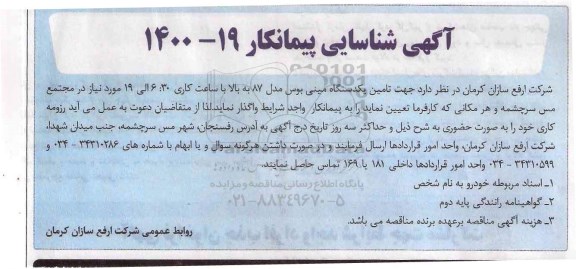 آگهی شناسایی پیمانکار ۱۹- ۱۴۰۰
شرکت ارفع سازان کرمان در نظر دارد جهت تامین یکدستگاه مینی بوس مدل ۸۷ به بالا با ساعت کاری ۶:۳۰ الی ۱۹ مورد نیاز در مجتمع
مس سرچشمه و هر مکانی که کارفرما تعیین نماید را به پیمانکار واجد شرایط واگذار نماید.لذا از متقاضیان دعوت به عمل می آید رزومه
کاری خود را به صورت حضوری به شرح ذیل و حداکثر سه روز تاریخ درج آگهی به آدرس رفسنجان، شهر مس سرچشمه، جنب میدان شهدا،
شرکت ارفع سازان کرمان، واحد امور قراردادها ارسال فرمایند و در صورت داشتن هرگونه سوال و یا ابهام با شماره های ۳۴۳۱۰۲۸۶ - ۰۳۴ و
۳۴۳۱۰۵۹۹ - ۰۳۴ واحد امور قراردادها داخلی ۱۸۱ یا ۱۶۹ تماس حاصل نمایند.
۱ـ اسناد مربوطه خودرو به نام شخص
پایگاه اطلاع رسانی مناقصه و مزایده
۲ـ گواهینامه رانندگی پایه دوم
۰۲۱-۸۸۳۴۹۶۷۰-۵
۳ـ هزینه آگهی مناقصه برعهده برنده مناقصه می باشد.
روابط عمومی شرکت ارفع سازان کرمان